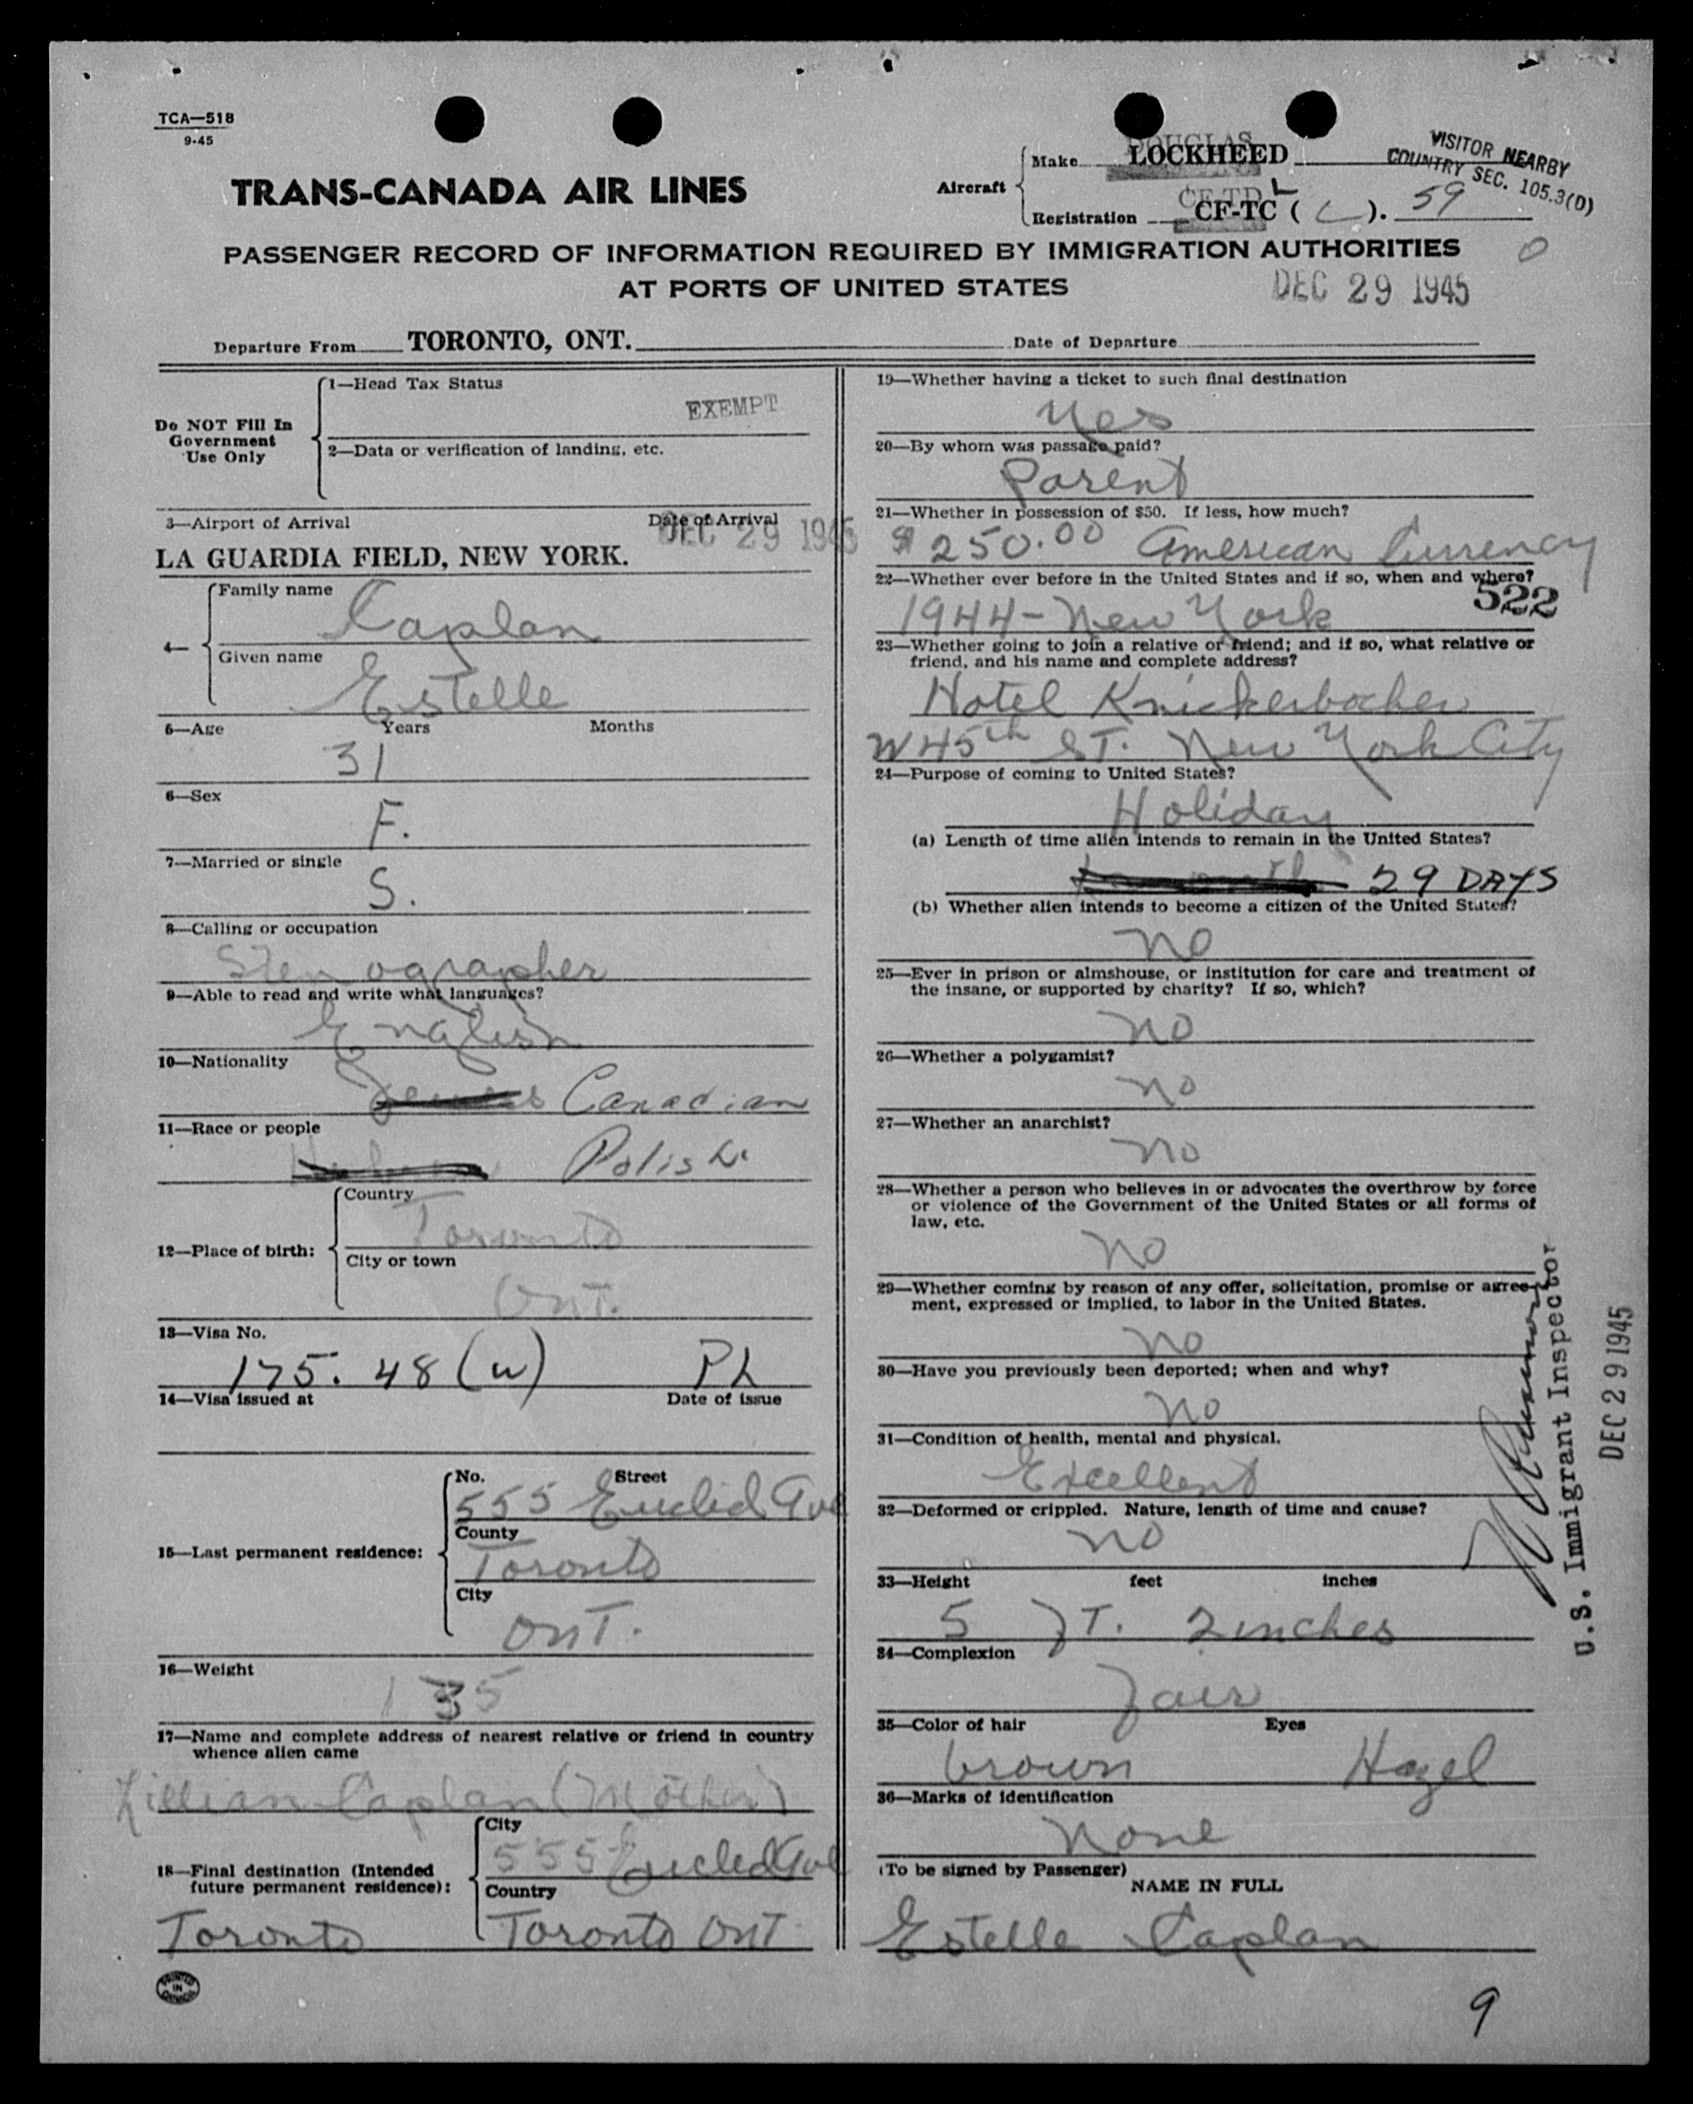 TCA—518
9-45
TRANS-CANADA AIR LINES
Aircraft
Make DOUGLAS LOCKHEED
Registration CF-TD L CF-TC ( L ). 59
VISITOR NEARBY
COUNTRY SEC. 105.3(D)
PASSENGER RECORD OF INFORMATION REQUIRED BY IMMIGRATION AUTHORITIES
AT PORTS OF UNITED STATES
0
DEC 29 1945
Departure From TORONTO, ONT. Date of Departure
Do NOT Fill In
Government
Use Only
1—Head Tax Status
EXEMPT
2—Data or verification of landing, etc.
3—Airport of Arrival Date of Arrival
DEC 29 1945
LA GUARDIA FIELD, NEW YORK.
4—
Family name
Caplan
Given name
Estelle
5—Age Years Months
31
6—Sex
F.
7—Married or single
S.
8—Calling or occupation
Stenographer
9—Able to read and write what languages?
English
10—Nationality
Canadian
11—Race or people
Polish
12—Place of birth:
Country
Toronto
City or town
Ont.
13—Visa No.
175. 48 (w) PL
14—Visa issued at Date of issue
15—Last permanent residence:
No. Street
555 Euclid Ave
County
Toronto
City
Ont.
16—Weight
135
17—Name and complete address of nearest relative or friend in country
whence alien came
Lillian Caplan (Mother)
18—Final destination (Intended
future permanent residence):
City
555 Euclid Ave
Country
Toronto Toronto Ont
PRINTED
IN
CANADA
19—Whether having a ticket to such final destination
Yes
20—By whom was passage paid?
Parent
21—Whether in possession of $50. If less, how much?
$250.00 American Currency
22—Whether ever before in the United States and if so, when and where?
522
1944 - New York
23—Whether going to join a relative or friend; and if so, what relative or
friend, and his name and complete address?
Hotel Knickerbocker
W 45th ST. New York City
24—Purpose of coming to United States?
Holiday
(a) Length of time alien intends to remain in the United States?
29 DAYS
(b) Whether alien intends to become a citizen of the United States?
no
25—Ever in prison or almshouse, or institution for care and treatment of
the insane, or supported by charity? If so, which?
no
26—Whether a polygamist?
no
27—Whether an anarchist?
no
28—Whether a person who believes in or advocates the overthrow by force
or violence of the Government of the United States or all forms of
law, etc.
no
29—Whether coming by reason of any offer, solicitation, promise or agree-
ment, expressed or implied, to labor in the United States.
no
30—Have you previously been deported; when and why?
no
31—Condition of health, mental and physical.
Excellent
32—Deformed or crippled. Nature, length of time and cause?
no
33—Height feet inches
5 FT. 2 inches
34—Complexion
Fair
35—Color of hair Eyes
brown Hazel
36—Marks of identification
None
(To be signed by Passenger)
NAME IN FULL
Estelle Caplan
U.S. Immigrant Inspector
DEC 29 1945
9